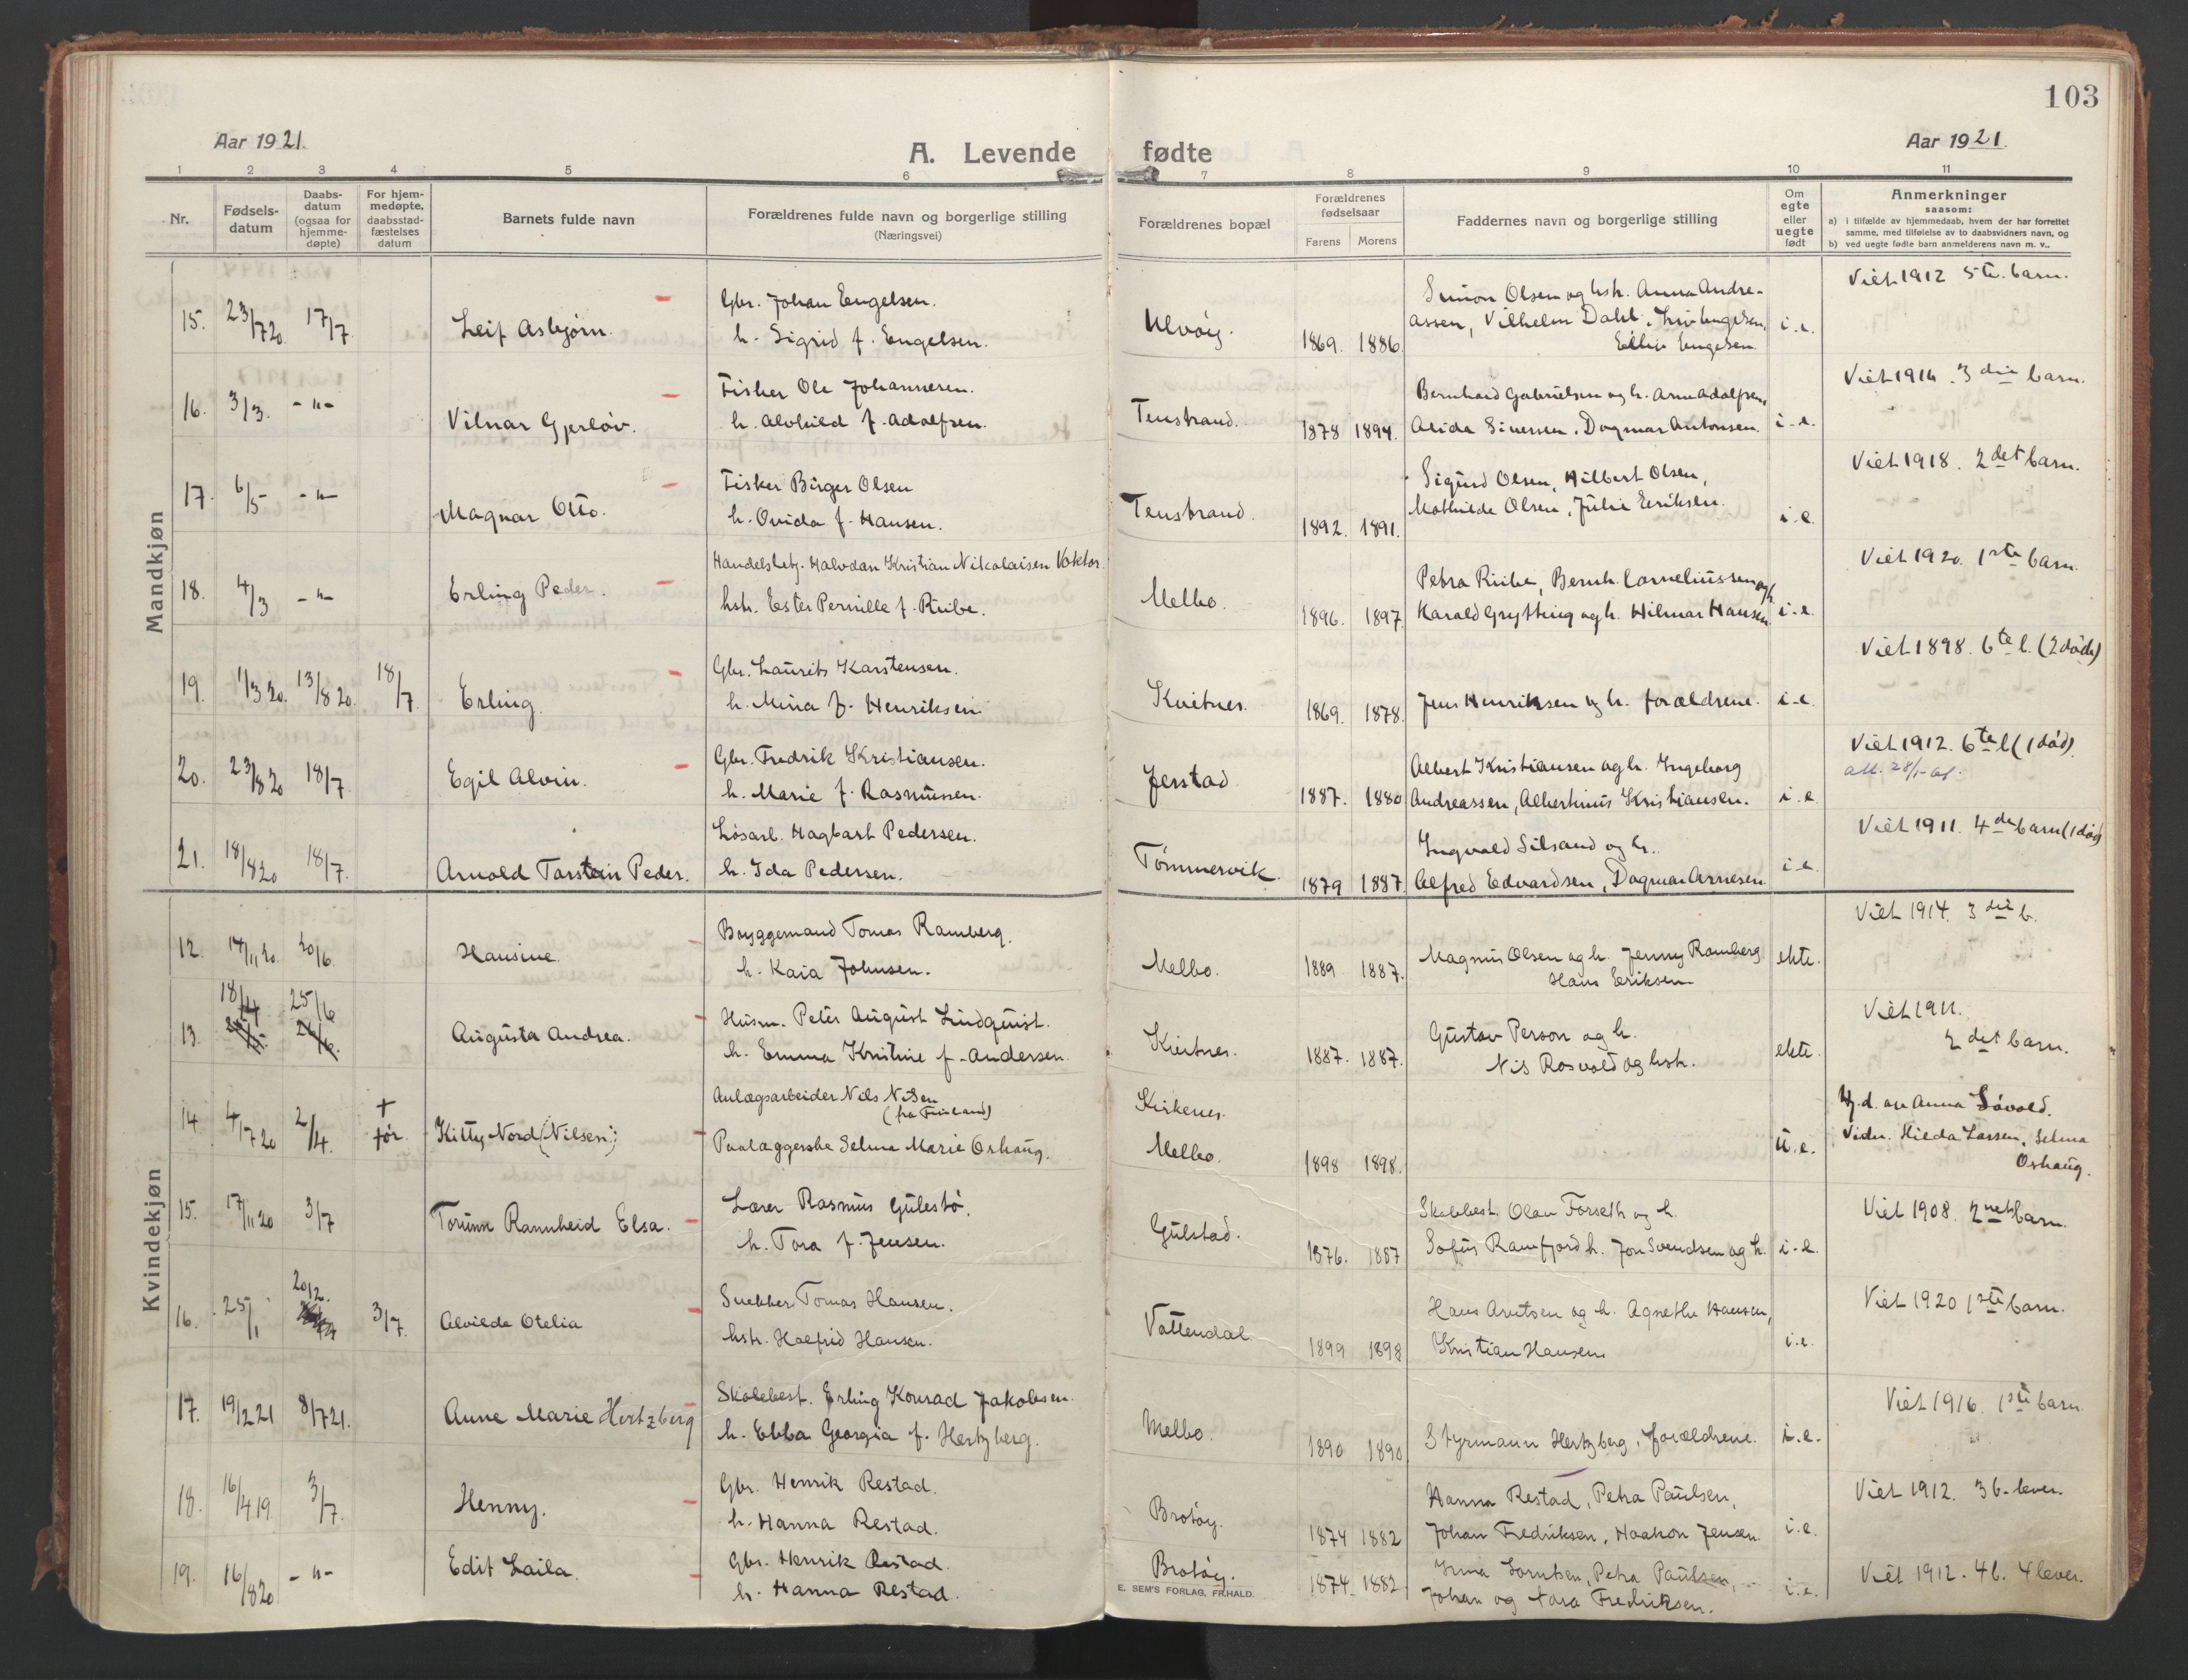 103
Aar 1921.
A. Levende fødte
Aar 1921.
1 2 3 4 5 6 7 8 9 10 11
Nr.
Fødsels-
datum
Daabs-
datum
(ogsaa for
hjemme-
døpte)
For hjem-
medøpte,
daabsstad-
fæstelses
datum
Barnets fulde navn
Forældrenes fulde navn og borgerlige stilling
(Næringsvei)
Forældrenes bopæl
Forældrenes
fødselsaar
Farens Morens
Faddernes navn og borgerlige stilling
Om
egte
eller
uegte
født
Anmerkninger
saasom:
a) i tilfælde av hjemmedaab, hvem der har forrettet
samme, med tilføielse av to daabsvidners navn, og
b) ved uegte fødte barn anmelderens navn m. v..
Mandkjøn
15. 23/7 20. 17/7. Leif Asbjørn.
Gbr. Johan Engelsen.
h. Sigrid f. Engelsen.
Ulvøy. 1869. 1886.
Simon Olsen og hstr. Anna Andre-
assen, Vilhelm Dahl, Engelsen,
Engelsen.
i.e.
Viet 1912 5te. barn.
16. 3/3. -"- Vilnar Gjerløv.
Fisker Ole Johannesen.
h. Alvhild f. Adolfsen.
Tenstrand. 1878 1894.
Bernhard Gabrielsen og h. Arne Adolfsen,
Alida Sivertsen, Dagmar Antonsen.
i.e.
Viet 1914. 3die barn.
17. 6/5 -"- Magnar Otto.
Fisker Birger Olsen
h. Ovida f. Hansen.
Tenstrand. 1892. 1891.
Sigurd Olsen, Hilbert Olsen,
Mathilde Olsen, Julie Eriksen.
i.e.
Viet 1918. 2det barn.
18. 4/3 -"- Erling Peder.
Handelsbetj. Halvdan Kristian Nikolaisen Voktor.
hstr. Ester Pernille f. Riibe.
Melbo. 1896. 1897.
Petra Riibe, Bernh. Corneliussen og h.
Harald Grytting og h. Hilmar Hansen
i.e.
Viet 1920. 1ste barn.
19. 1/3 20. 13/8 20. 18/7. Erling.
Gbr. Laurits Karstensen.
h. Mina f. Henriksen
Kvitnes. 1869. 1878.
Jens Henriksen og h. forældrene.
i.e.
Viet 1898. 6te b. (2 døde)
20. 23/8 20 18/7. Egil Alvin.
Gbr. Fredrik Kristiansen.
h. Marie f. Rasmussen.
Jerstad. 1887. 1880
Albert Kristiansen og h. Ingeborg
Andreassen, Albertinius Kristiansen.
i.e.
Viet 1912. 6te b (1 død).
att. 28/1-61.
21. 18/8 20 18/7. Arnold Torstein Peder.
Løsarb. Hagbart Pedersen.
h. Ida Pedersen.
Tømmervik. 1879 1887.
Ingvald Silsand og h.
Alfred Edvardsen, Dagmar Arnesen.
i.e.
Viet 1911. 4de barn (1 død)
Kvindekjøn
12. 14/11 20. 20/6. Hansine.
Bryggemand Tomas Ramberg.
h. Kaia Johnsen.
Melbo. 1889 1887.
Magnus Olsen og h. Jenny Ramberg
Hans Eriksen
ekte.
Viet 1914. 3die b.
13. 18/4 25/6 Augusta Andrea.
Husm. Peter August Lindquist.
h. Emma Kristine f. Andersen.
Kvitnes. 1887. 1887.
Gustav Person og h.
Nils Rosvold og hstr.
ekte.
Viet 1911.
2det barn.
14. 4/7 20 2/4. † før. Kitty Nord (Nilsen)
Anlægsarbeider Nils Nilsen
(fra Finland)
Paalæggerske Selma Marie Oshaug.
Kirkenes.
Melbo. 1898 1898.
u.e.
Hj.d. av Anna Løvold.
Vidn. Hilda Larsen, Selma
Oshaug.
15. 17/11 20 3/7 Torunn Rannheid Elsa.
Lærer Rasmus Gulestø.
h. Tora f. Jensen.
Gulstad. 1876. 1887
Skolebest. Olav Forseth og h.
Sofus Ramfjord h. Jon Svendsen og h.
i.e.
Viet 1908. 2net barn.
16. 25/1 20/2. 3/7. Alvilde Otelia
Snekker Tomas Hansen.
hstr. Halfrid Hansen.
Vottendal. 1899 1898
Hans Arntsen og h. Agnethe Hansen,
Kristian Hansen
i.e.
Viet 1920 1ste barn.
17. 19/2 21 8/7 21. Anne Marie Hertzberg
Skolebest. Erling Konrad Jakobsen.
h. Ebba Georgia f. Hertzberg.
Melbo. 1890 1890
Styrmann Hertzberg, forældrene.
i.e.
Viet 1916. 1ste barn.
18. 16/4 19 3/7. Henny.
Gbr. Henrik Restad.
h. Hanna Restad.
Brotøy. 1874 1882
Hanna Restad, Petra Paulsen,
Johan Fredriksen, Haakon Jensen.
i.e.
Viet 1912. 3 b. lever.
19. 16/8 20 -"- Edit Laila.
Gbr. Henrik Restad.
h. Hanna Restad.
Brotøy. 1874. 1882
Irma Lorntsen, Petra Paulsen,
Johan og Tora Fredriksen.
i.e.
Viet 1912. 4 b. 4 lever.
E. SEM'S FORLAG, FR.HALD.